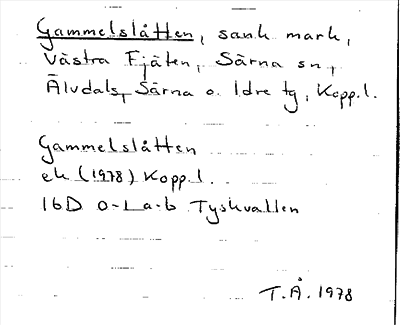 Gammelslåtten, sank mark,
Västra Fjäten, Särna sn,
Älvdals, Särna o. Idre tg, Kopp.l.
Gammelslåtten
ek (1978) Kopp.l.
16D 0-1 a-b Tyskvallen
T.Å. 1978